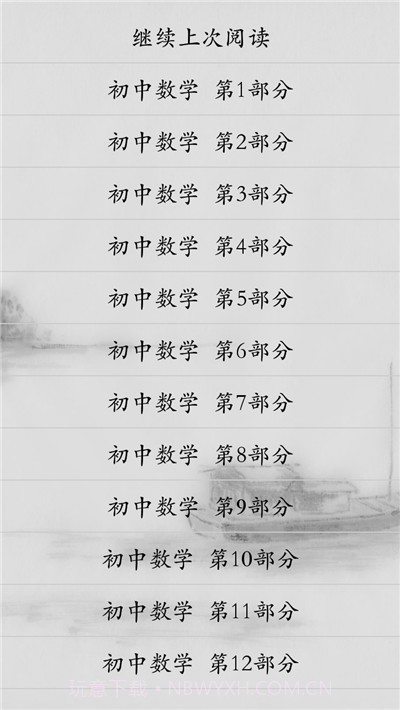 继续上次阅读
初中数学 第1部分
初中数学 第2部分
初中数学 第3部分
初中数学 第4部分
初中数学 第5部分
初中数学 第6部分
初中数学 第7部分
初中数学 第8部分
初中数学 第9部分
初中数学 第10部分
初中数学 第11部分
初中数学 第12部分
玩意下载·NBWYXH.COM.CN